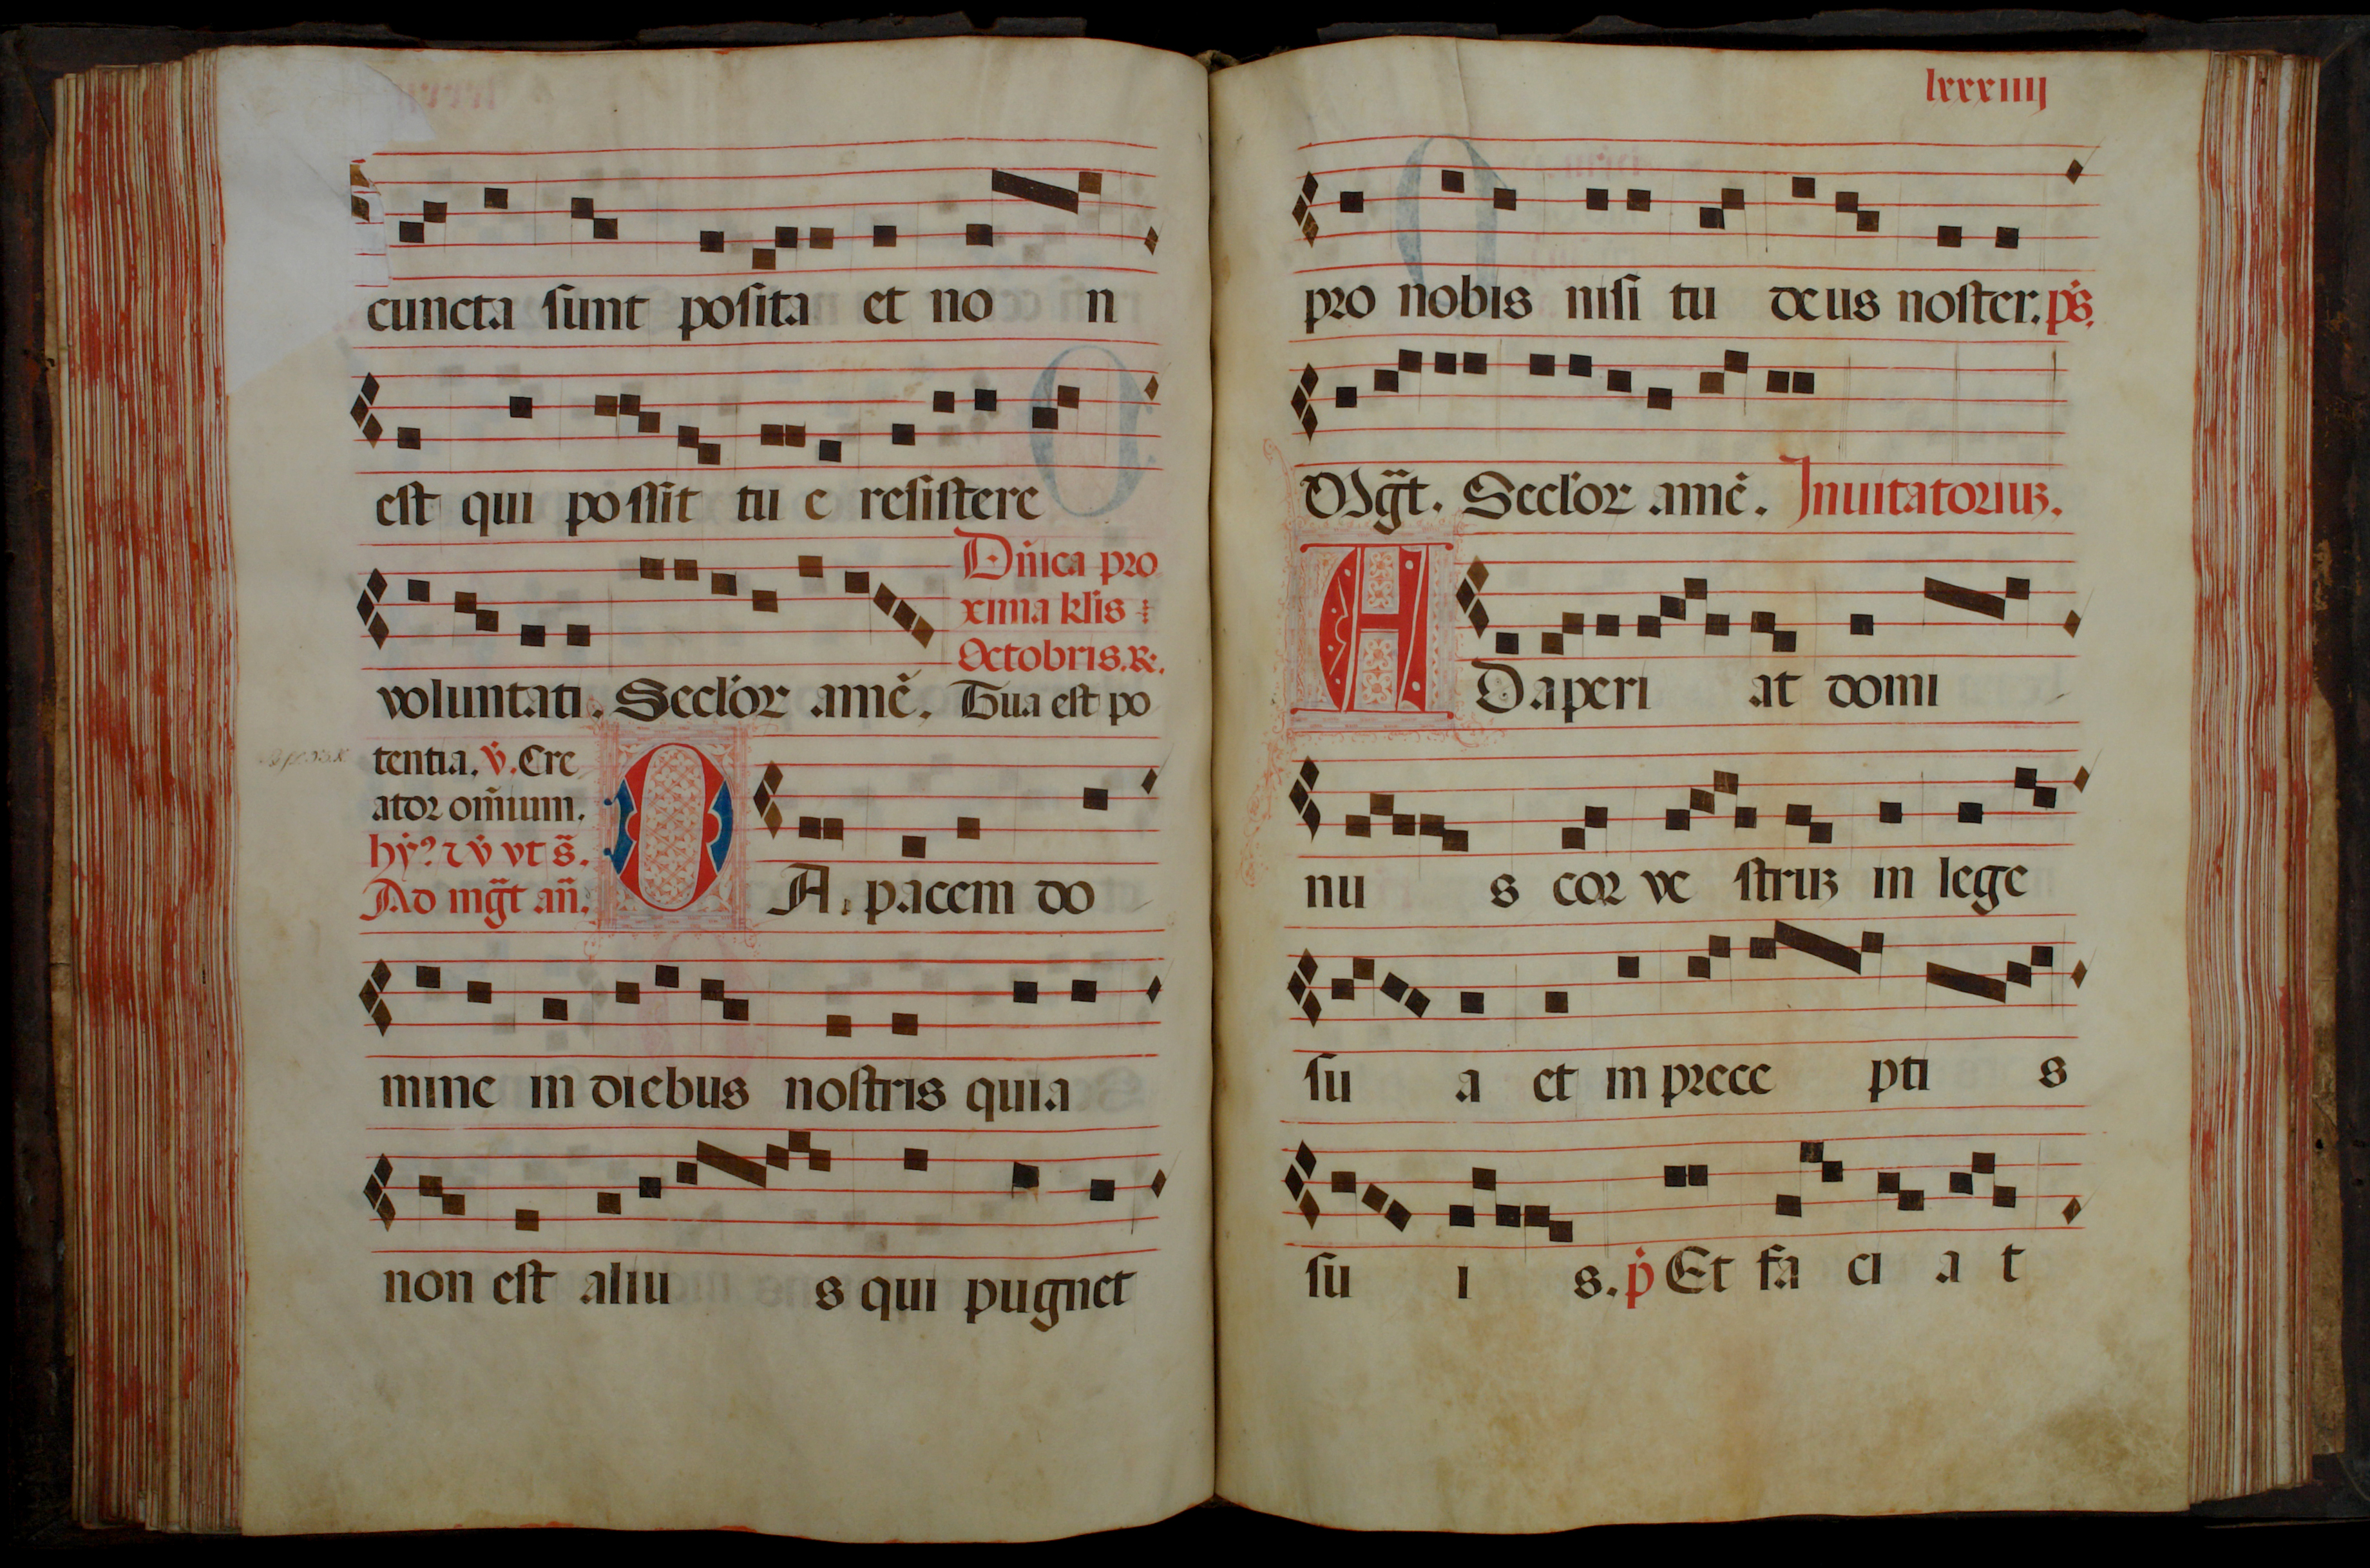 cuncta sunt posita et no n
est qui possit tu e resistere
voluntati. Seclor̃ amẽ.
Dñica pro
xima kl̃is
Octobris. R.
Tua est po
tentia. v̇. Cre
ator om̃ium.
hẏ? ⁊ v̇ vt s̃.
Ad mg̃t añ.
DA. pacem do
mine in diebus nostris quia
non est aliu s qui pugnet
lxxxiiij
pro nobis nisi tu deus noster. ps̃.
Mg̃t. Seclor̃ amẽ. Inuitatoriuꝫ.
ADaperi at domi
nu s cor ve struꝫ in lege
su a et in prece pti s
su i s. p̃ Et fa ci a t